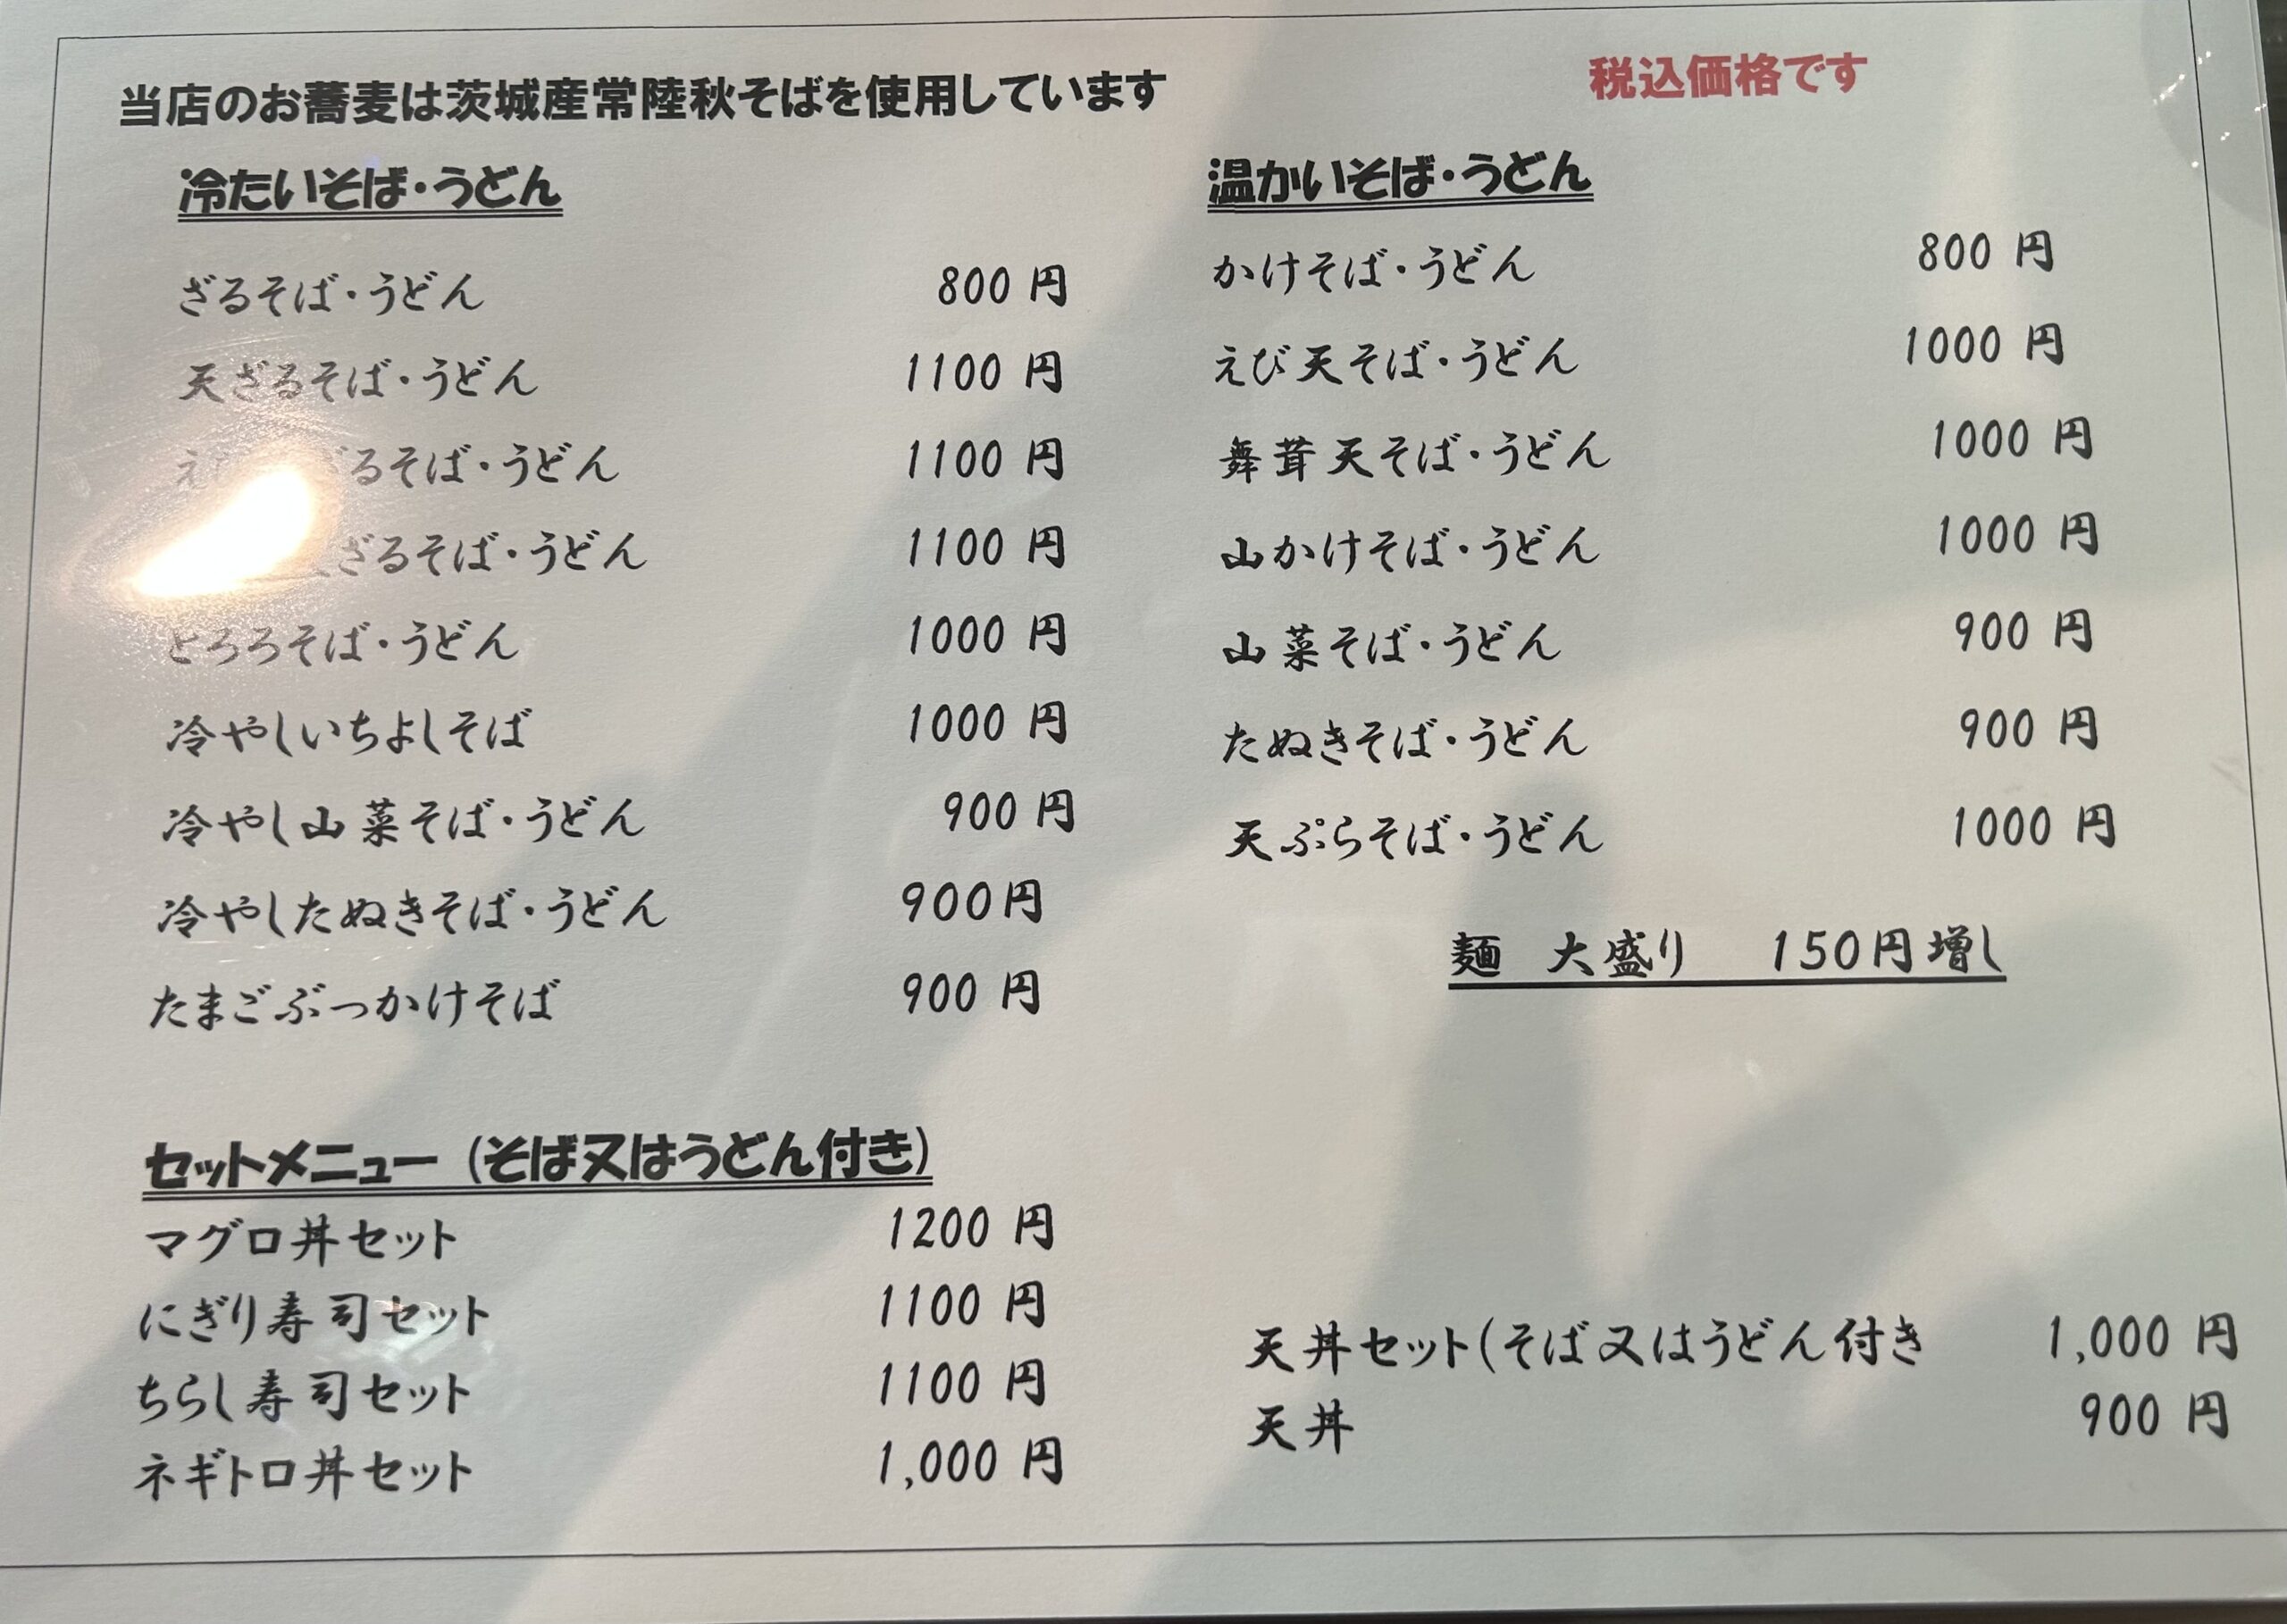 当店のお蕎麦は茨城産常陸秋そばを使用しています
税込価格です
冷たいそば・うどん
ざるそば・うどん 800 円
天ざるそば・うどん 1100 円
ざるそば・うどん 1100 円
ざるそば・うどん 1100 円
とろろそば・うどん 1000 円
冷やしいちよしそば 1000 円
冷やし山菜そば・うどん 900 円
冷やしたぬきそば・うどん 900円
たまごぶっかけそば 900 円
温かいそば・うどん
かけそば・うどん 800 円
えび天そば・うどん 1000 円
舞茸天そば・うどん 1000 円
山かけそば・うどん 1000 円
山菜そば・うどん 900 円
たぬきそば・うどん 900 円
天ぷらそば・うどん 1000 円
麺 大盛り 150円増し
セットメニュー (そば又はうどん付き)
マグロ丼セット 1200 円
にぎり寿司セット 1100 円
ちらし寿司セット 1100 円
ネギトロ丼セット 1,000 円
天丼セット(そば又はうどん付き 1,000 円
天丼 900 円